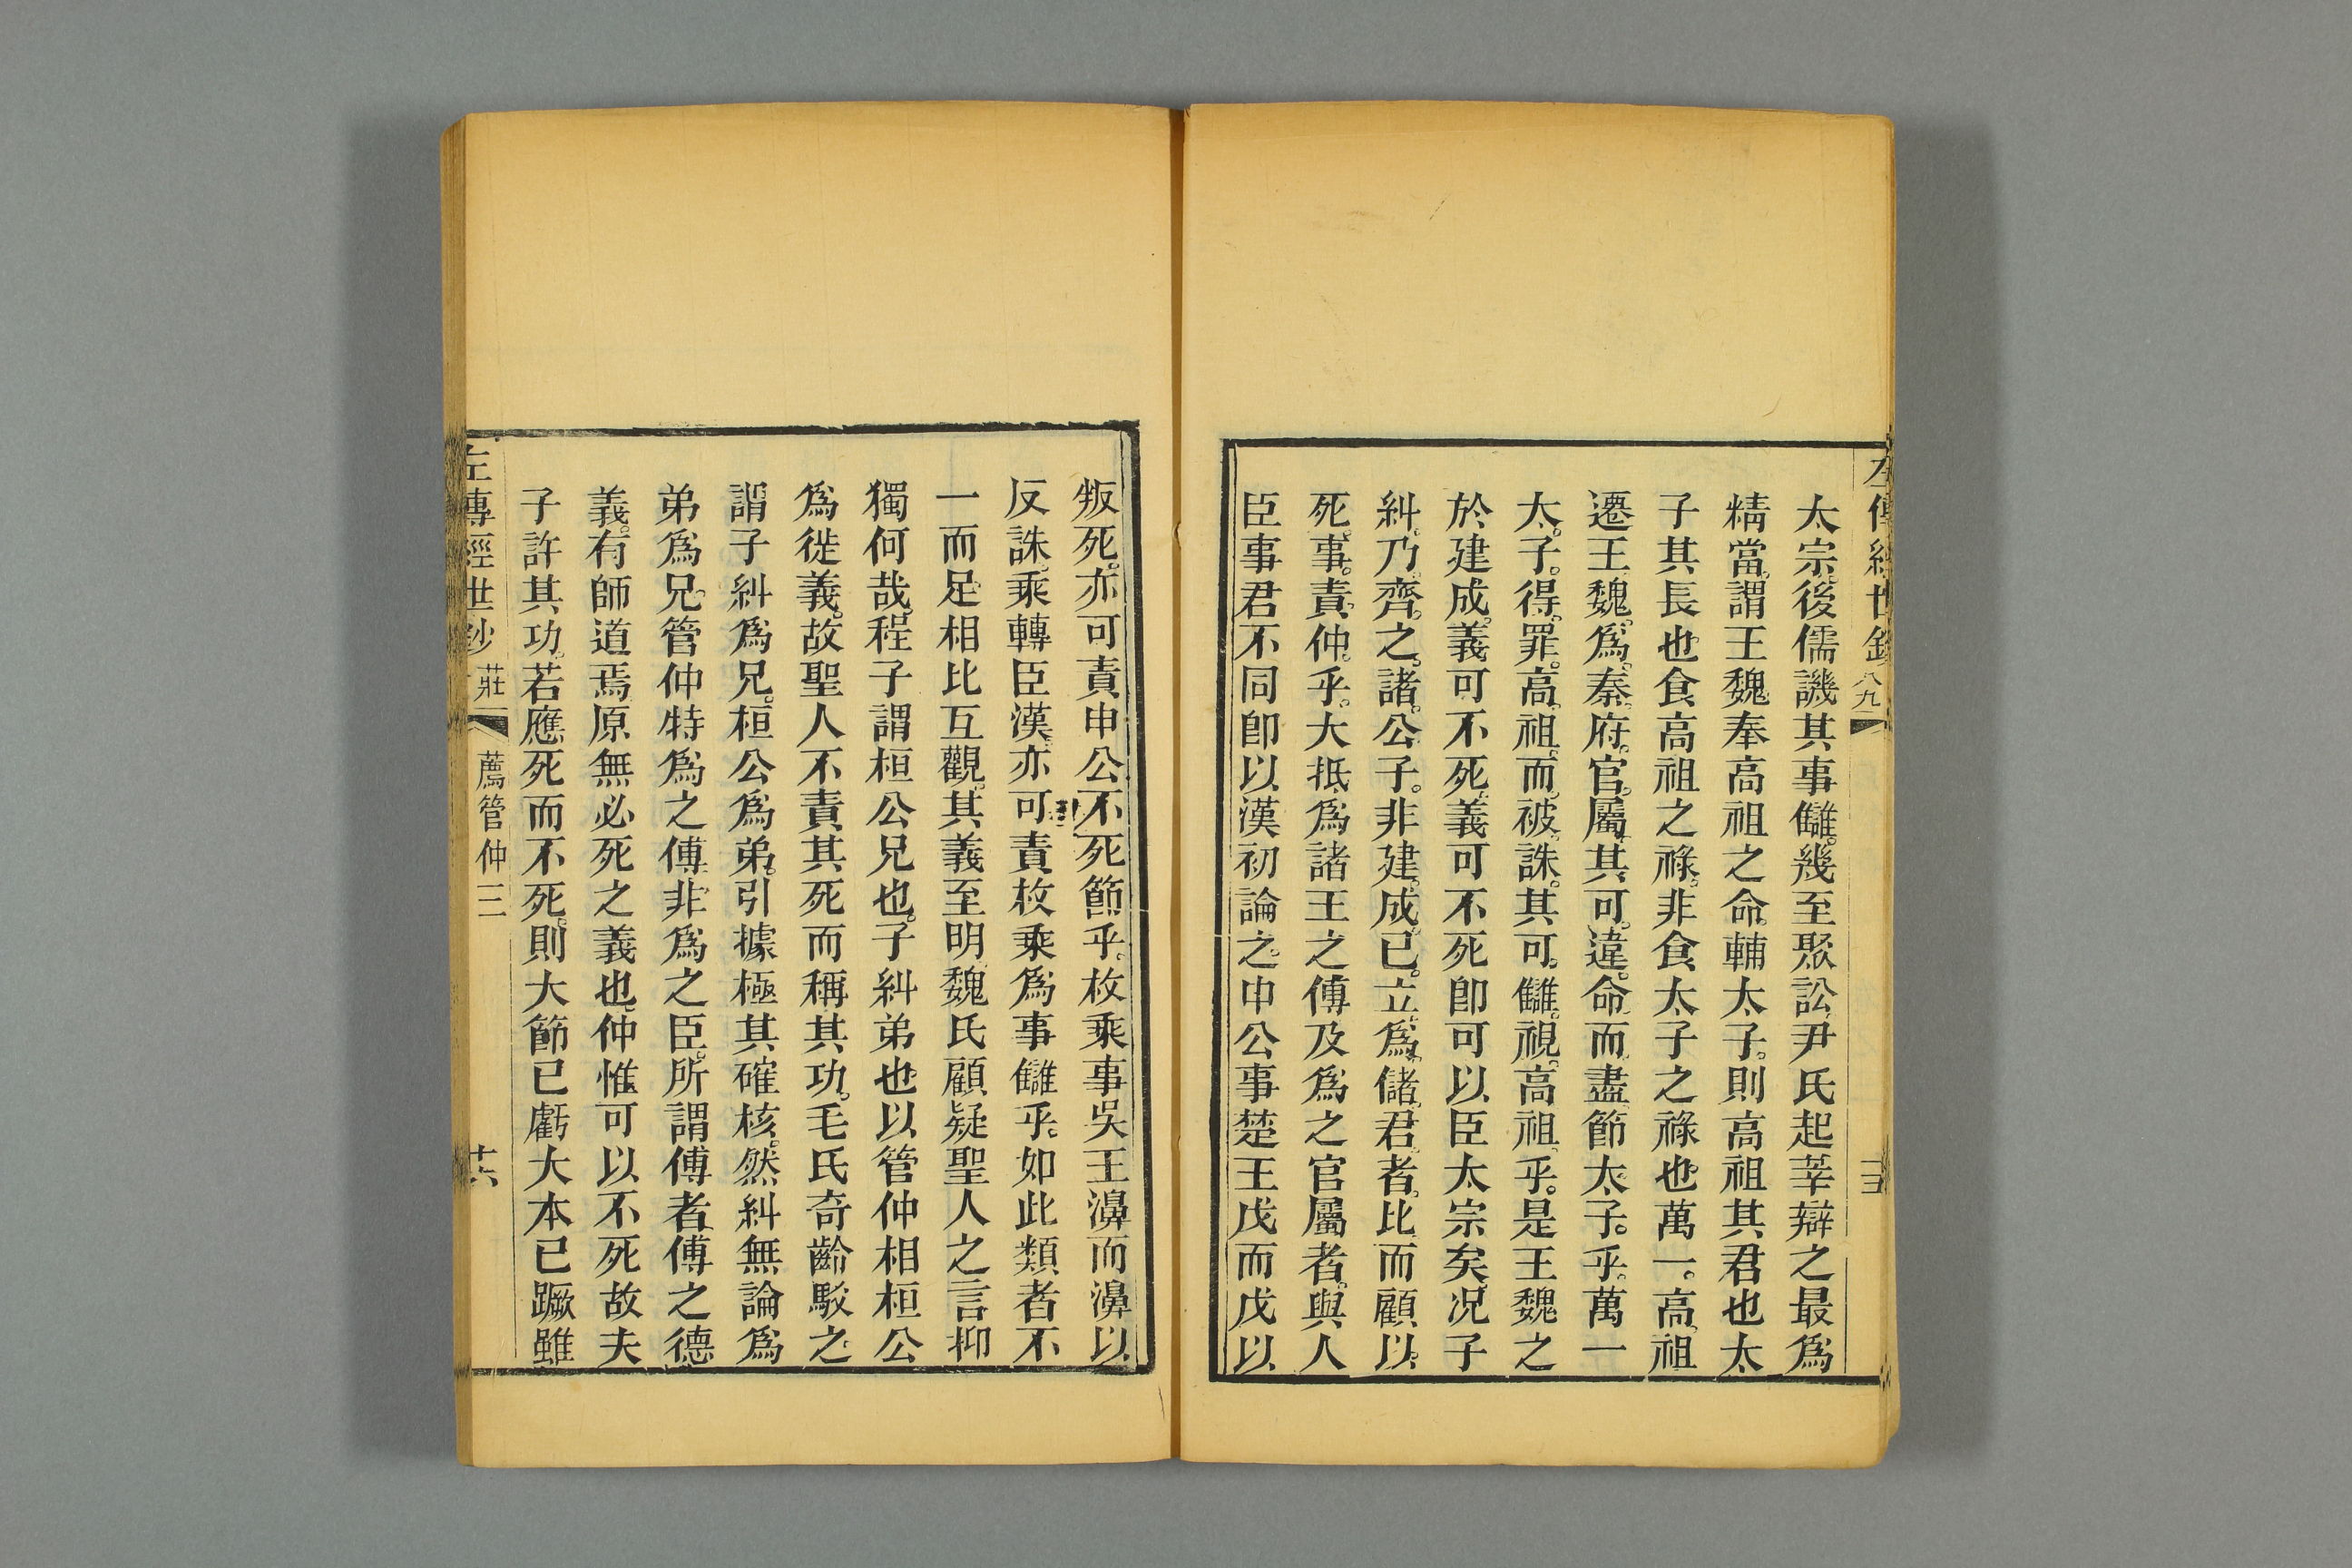 太宗後儒譏其事讎幾至聚訟尹氏起莘辯之最為
精當謂王魏奉高祖之命輔太子則高祖其君也太
子其長也食高祖之祿非食太子之祿也萬一高祖
遷王魏爲秦府官屬其可違命而盡節太子乎萬一
太子得罪高祖而被誅其可讎視高祖乎是王魏之
於建成義可不死義可不死卽可以臣太宗矣況子
糾乃齊之諸公子非建成已立爲儲君者比而顧以
死事責仲乎大抵爲諸王之傅及爲之官屬者與人
臣事君不同卽以漢初論之申公事楚王戊而戊以
叛死亦可責申公不死節乎枚乘事吳王濞而濞以
反誅乘轉臣漢亦可責枚乘爲事讎乎如此類者不
一而足相比互觀其義至明魏氏顧疑聖人之言抑
獨何哉程子謂桓公兄也子糾弟也以管仲相桓公
爲徙義故聖人不責其死而稱其功毛氏奇齡駁之
謂子糾爲兄桓公爲弟引據極其確核然糾無論爲
弟爲兄管仲特爲之傅非爲之臣所謂傅者傅之德
義有師道焉原無必死之義也仲惟可以不死故夫
子許其功若應死而不死則大節已虧大本已蹶雖
左傳經世鈔 莊一 薦管仲三 十六